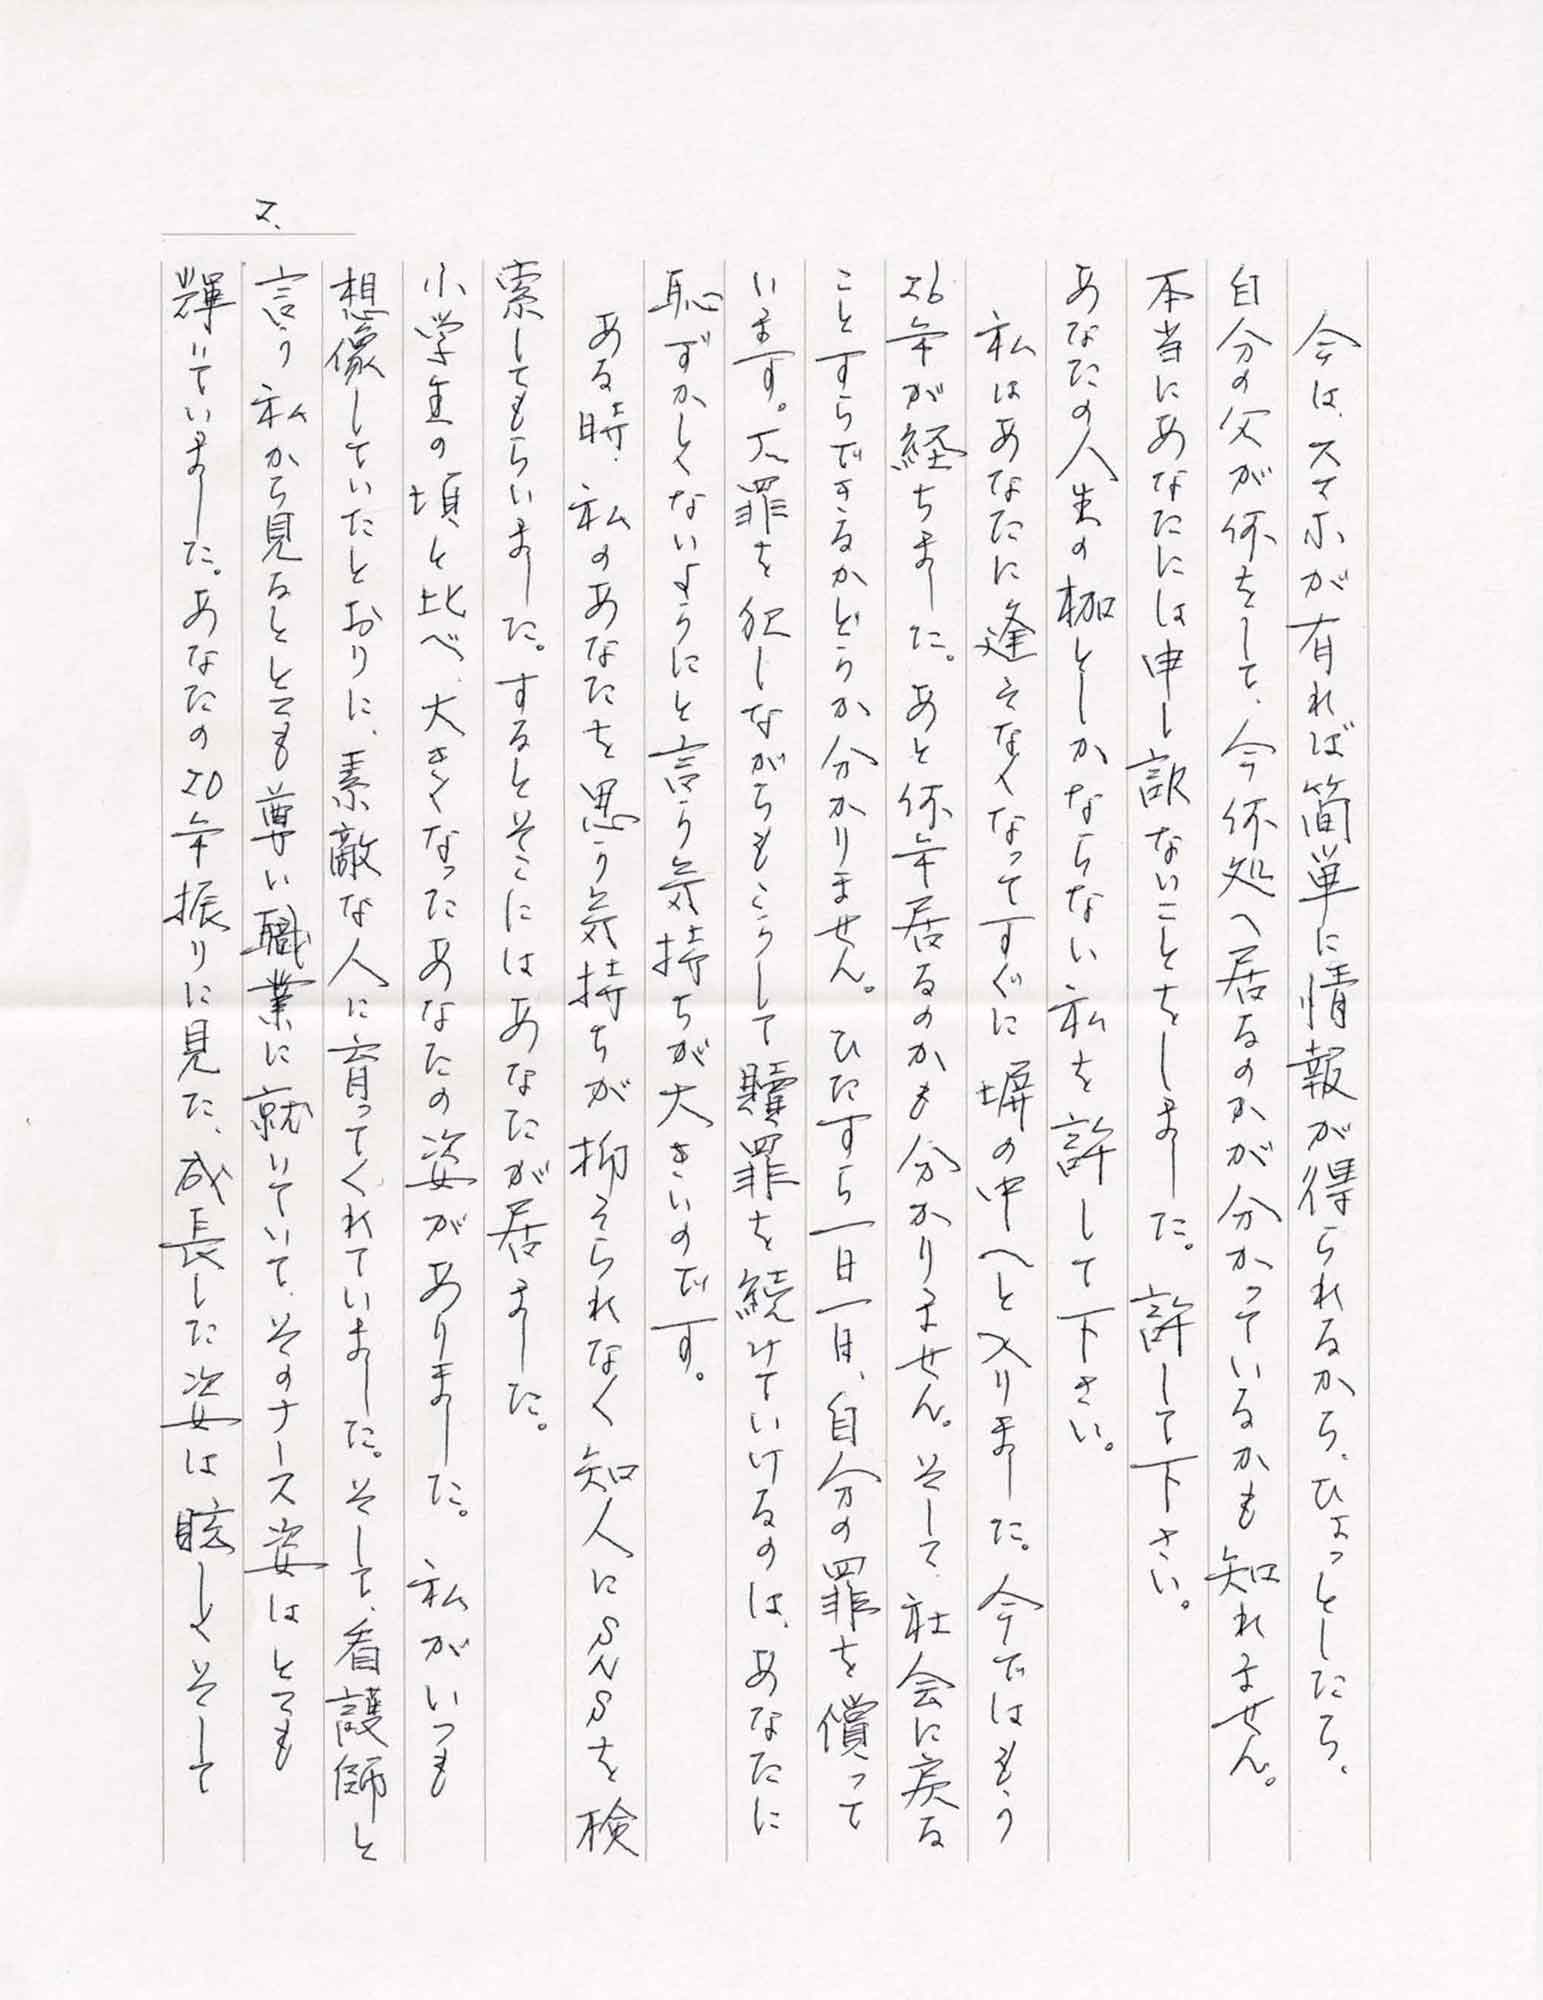 2.
今は、スマホが有れば簡単に情報が得られるから、ひょっとしたら、
自分の父が何をして、今何処へ居るのかが分かっているかも知れません。
本当にあなたには申し訳ないことをしました。許して下さい。
あなたの人生の枷としかならない私を許して下さい。
私はあなたに逢えなくなってすぐに塀の中へと入りました。今ではもう
26年が経ちました。あと何年居るのかも分かりません。そして、社会に戻る
ことすらできるかどうか分かりません。ひたすら一日一日、自分の罪を償って
います。大罪を犯しながらもこうして贖罪を続けていけるのは、あなたに
恥ずかしくないようにと言う気持ちが大きいのです。
ある時、私のあなたを思う気持ちが抑えられなく知人にSNSを検
索してもらいました。するとそこにはあなたが居ました。
小学生の頃と比べ、大きくなったあなたの姿がありました。私がいつも
想像していたとおりに、素敵な人に育ってくれていました。そして、看護師と
言う私から見るととても尊い職業に就いていて、そのナース姿はとても
輝いていました。あなたの20年振りに見た、成長した姿は眩しくそして